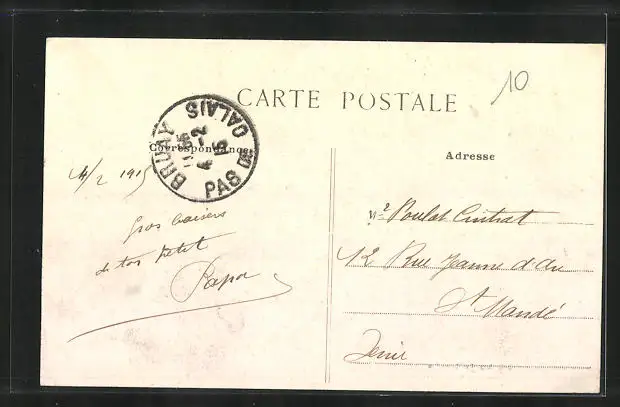 10
CARTE POSTALE
BRUAY
4-2
15
PAS DE CALAIS
Correspondance
Adresse
4/2 1915
Gros baisers
de ton petit
Papa
12 Rue Jeanne d'Arc
St Mandé
Seine